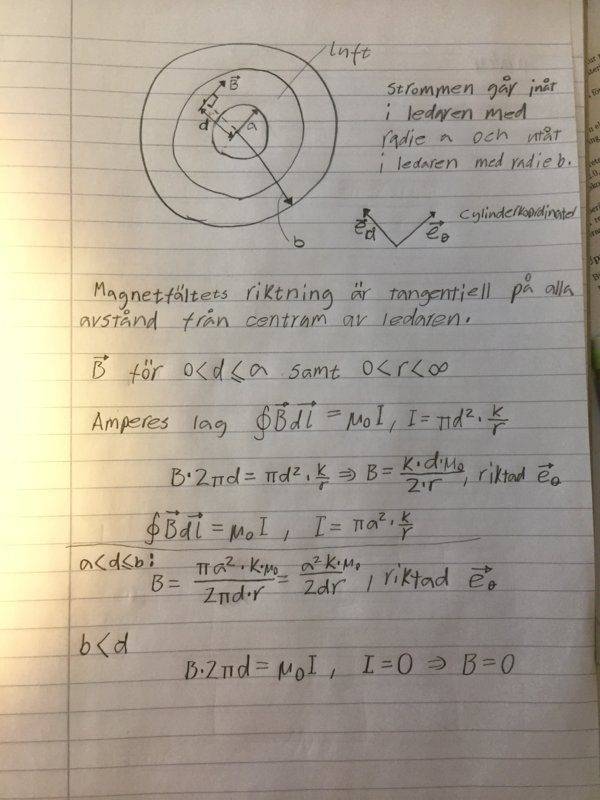 luft
B⃗
d
a
b
Strömmen går inåt
i ledaren med
radie a och utåt
i ledaren med radie b.
e⃗d e⃗θ cylinderkoordinater
Magnetfältets riktning är tangentiell på alla
avstånd från centrum av ledaren.
B⃗ för 0<d≤a samt 0<r<∞
Amperes lag ∮B⃗dl⃗ = μ₀I, I = πd² · k/r
B·2πd = πd² · k/r ⇒ B = k·d·μ₀/2·r, riktad e⃗θ
∮B⃗dl⃗ = μ₀I , I = πa² · k/r
a<d≤b:
B = πa²·k·μ₀/2πd·r = a²k·μ₀/2dr , riktad e⃗θ
b<d
B·2πd = μ₀I , I=0 ⇒ B=0